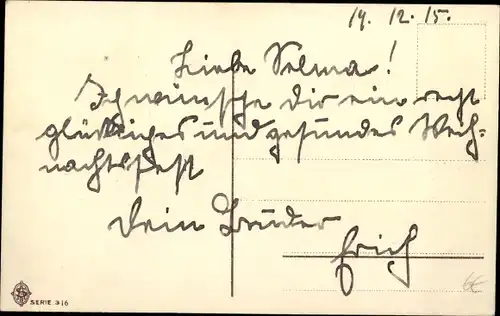 19. 12. 15.
Liebe Selma!
Ich wünsche dir ein recht
glückliches und gesundes Weih-
nachtsfest
Dein Bruder
Erich
SERIE 316